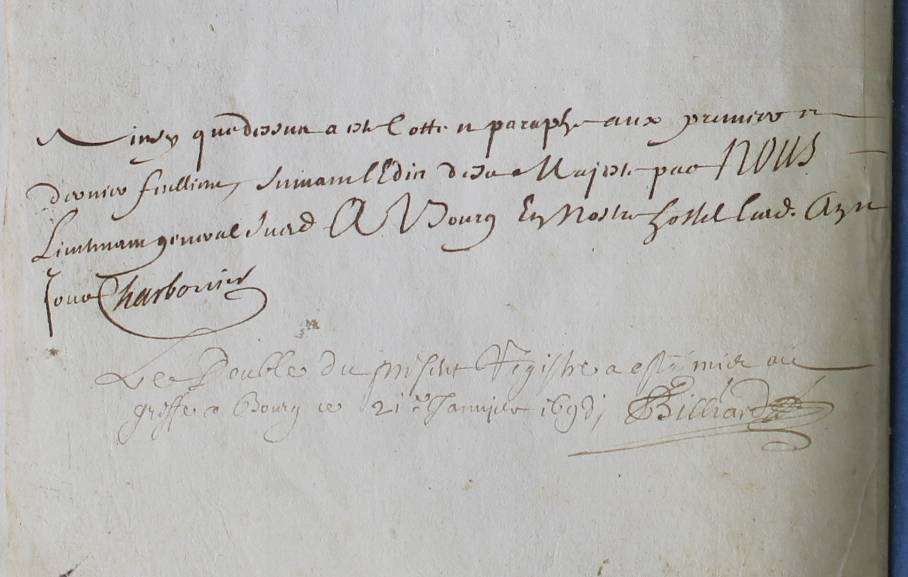 Ainsy que dessus a esté cotté et paraphé aux premier et
dernier feulliet, suivant l'Edit de sa Majesté par NOUS
Lieutenant general susd A Bourg En Nostre hostel lesd. An et
jour Charbonnier
Le Double du present Registre a esté mis au
greffe a Bourg ce 21e Janvier Billiard